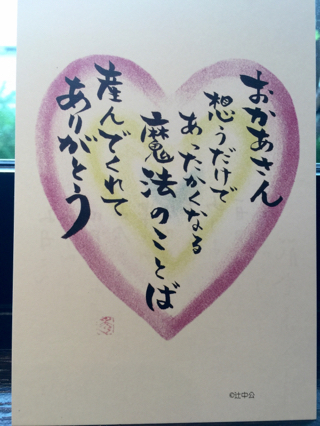 おかあさん
想うだけで
あったかくなる
魔法のことば
産んでくれて
ありがとう
©辻中公